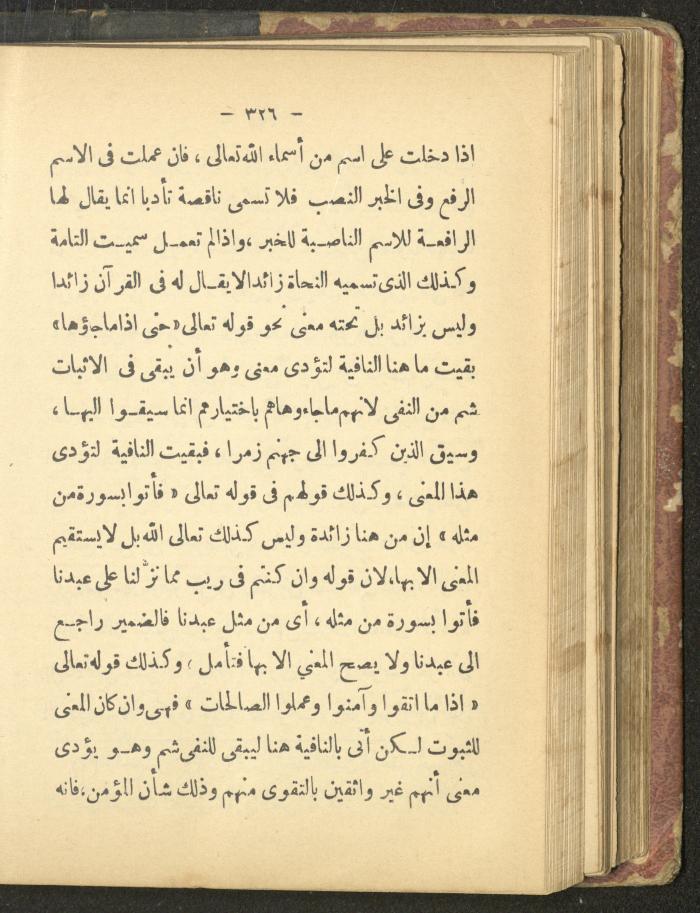 — ٣٢٦ —
اذا دخلت على اسم من أسماء الله تعالى ، فان عملت فى الاسم
الرفع وفى الخبر النصب فلا تسمى ناقصة تأدبا انما يقال لها
الرافعة للاسم الناصبة للخبر ، واذا لم تعمل سميت التامة
وكذلك الذى تسميه النحاة زائدا لا يقال له فى القرآن زائدا
وليس بزائد بل تحته معنى نحو قوله تعالى « حتى اذا ماجاؤها »
بقيت ما هنا النافية لتؤدى معنى وهو أن يبقى فى الاثبات
شم من النفى لانهم ماجاءوها هم باختيارهم انما سيقوا اليها ،
وسيق الذين كفروا الى جهنم زمرا ، فبقيت النافية لتؤدى
هذا المعنى ، وكذلك قولهم فى قوله تعالى « فأتوا بسورة من
مثله » إن من هنا زائدة وليس كذلك تعالى الله بل لا يستقيم
المعنى الا بها، لان قوله وان كنتم فى ريب مما نزّلنا على عبدنا
فأتوا بسورة من مثله ، أى من مثل عبدنا فالضمير راجع
الى عبدنا ولا يصح المعني الا بها فتأمل ، وكذلك قوله تعالى
« اذا ما اتقوا وآمنوا وعملوا الصالحات » فهى وان كان المعنى
للثبوت لكن أتى بالنافية هنا ليبقى للنفى شم وهو يؤدى
معنى أنهم غير واثقين بالتقوى منهم وذلك شأن المؤمن، فانه